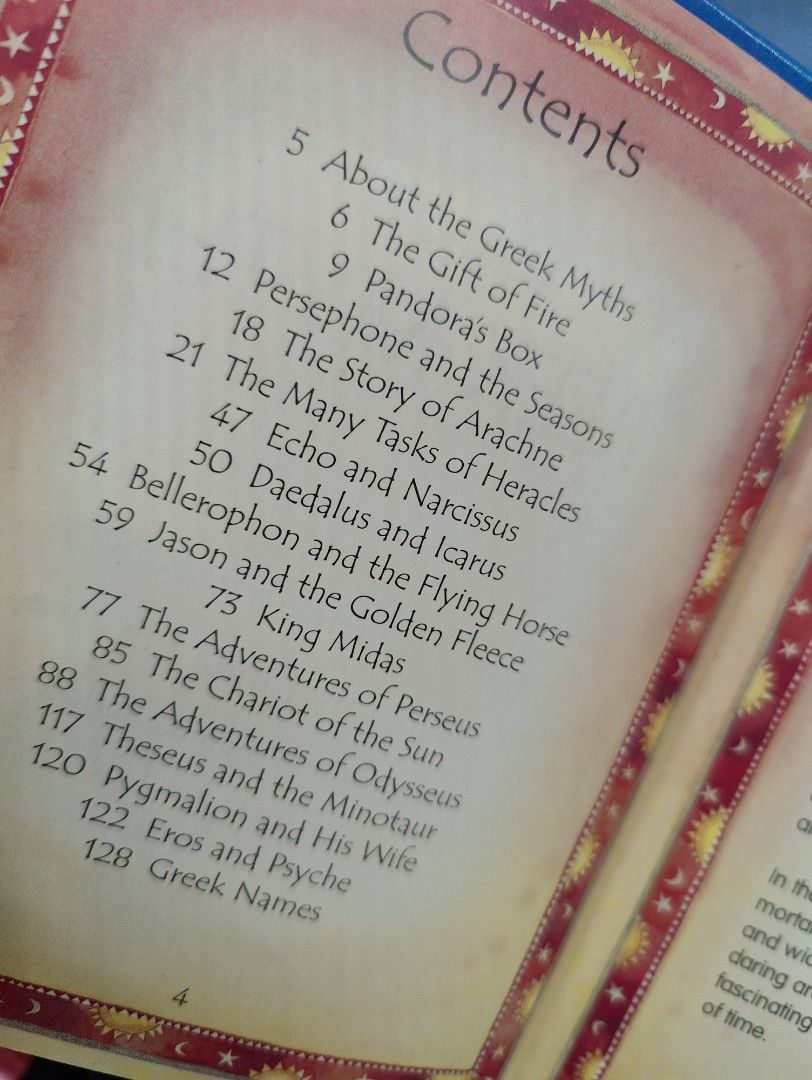 Contents
5 About the Greek Myths
6 The Gift of Fire
9 Pandora's Box
12 Persephone and the Seasons
18 The Story of Arachne
21 The Many Tasks of Heracles
47 Echo and Narcissus
50 Daedalus and Icarus
54 Bellerophon and the Flying Horse
59 Jason and the Golden Fleece
73 King Midas
77 The Adventures of Perseus
85 The Chariot of the Sun
88 The Adventures of Odysseus
117 Theseus and the Minotaur
120 Pygmalion and His Wife
122 Eros and Psyche
128 Greek Names
4
In
and
daring
fascinating
of time.